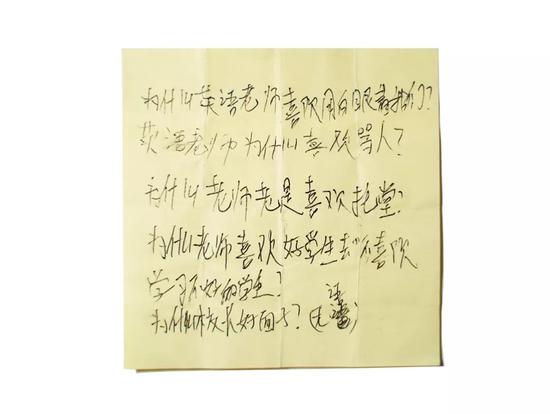 为什么英语老师喜欢用白眼看我们?
英语老师为什么喜欢骂人?
为什么老师老是喜欢拖堂?
为什么老师喜欢好学生却不喜欢
学习不好的学生?
为什么校长好面子?